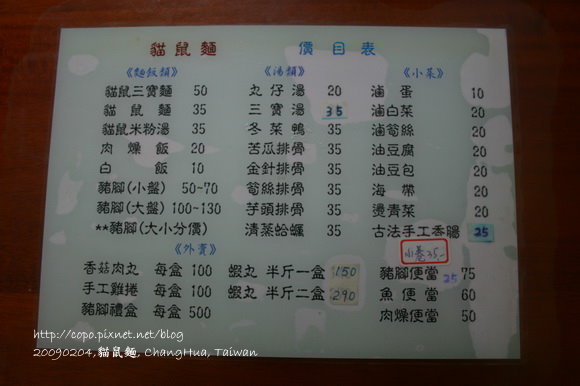 貓鼠麵 價目表
《麵飯類》 《湯類》 《小菜》
貓鼠三寶麵 50 丸仔湯 20 滷蛋 10
貓鼠麵 35 三寶湯 35 滷白菜 20
貓鼠米粉湯 35 冬菜鴨 35 滷筍絲 20
肉燥飯 20 苦瓜排骨 35 油豆腐 20
白飯 10 金針排骨 35 油豆包 20
豬腳(小盤) 50~70 筍絲排骨 35 海帶 20
豬腳(大盤) 100~130 芋頭排骨 35 燙青菜 20
**豬腳(大小分價) 清蒸蛤蠣 35 古法手工香腸 25
《外賣》 小卷35.-
香菇肉丸 每盒 100 蝦丸 半斤一盒 150 豬腳便當 75
25
手工雞捲 每盒 100 蝦丸 半斤二盒 290 魚便當 60
豬腳禮盒 每盒 500 肉燥便當 50
http://copo.pixnet.net/blog
20090204,貓鼠麵, ChangHua, Taiwan